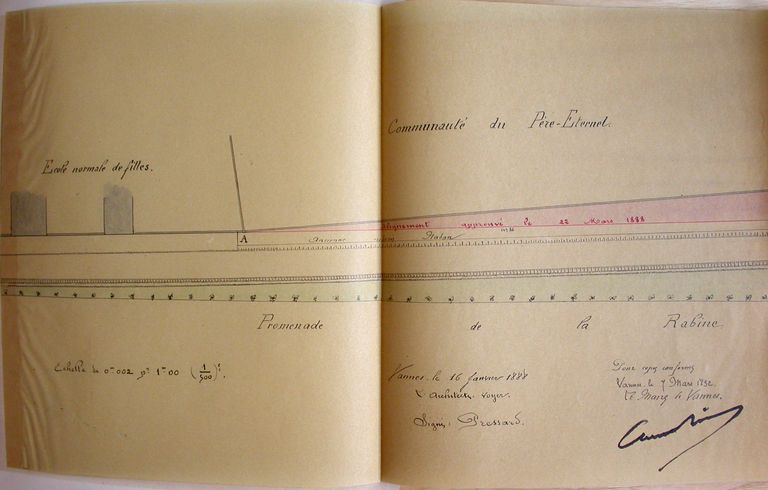 Communauté du Père-Eternel.
Ecole normale de filles.
Alignement approuvé le 22 Mars 1888
A
Promenade de la Rabine
Echelle de 0m002 pr 1m00 (1/500)e.
Vannes, le 16 Janvier 1888
L'Architecte-voyer.
Signé: Pressard.
Pour copie conforme
Vannes, le 7 Mars
Le Maire de Vannes.